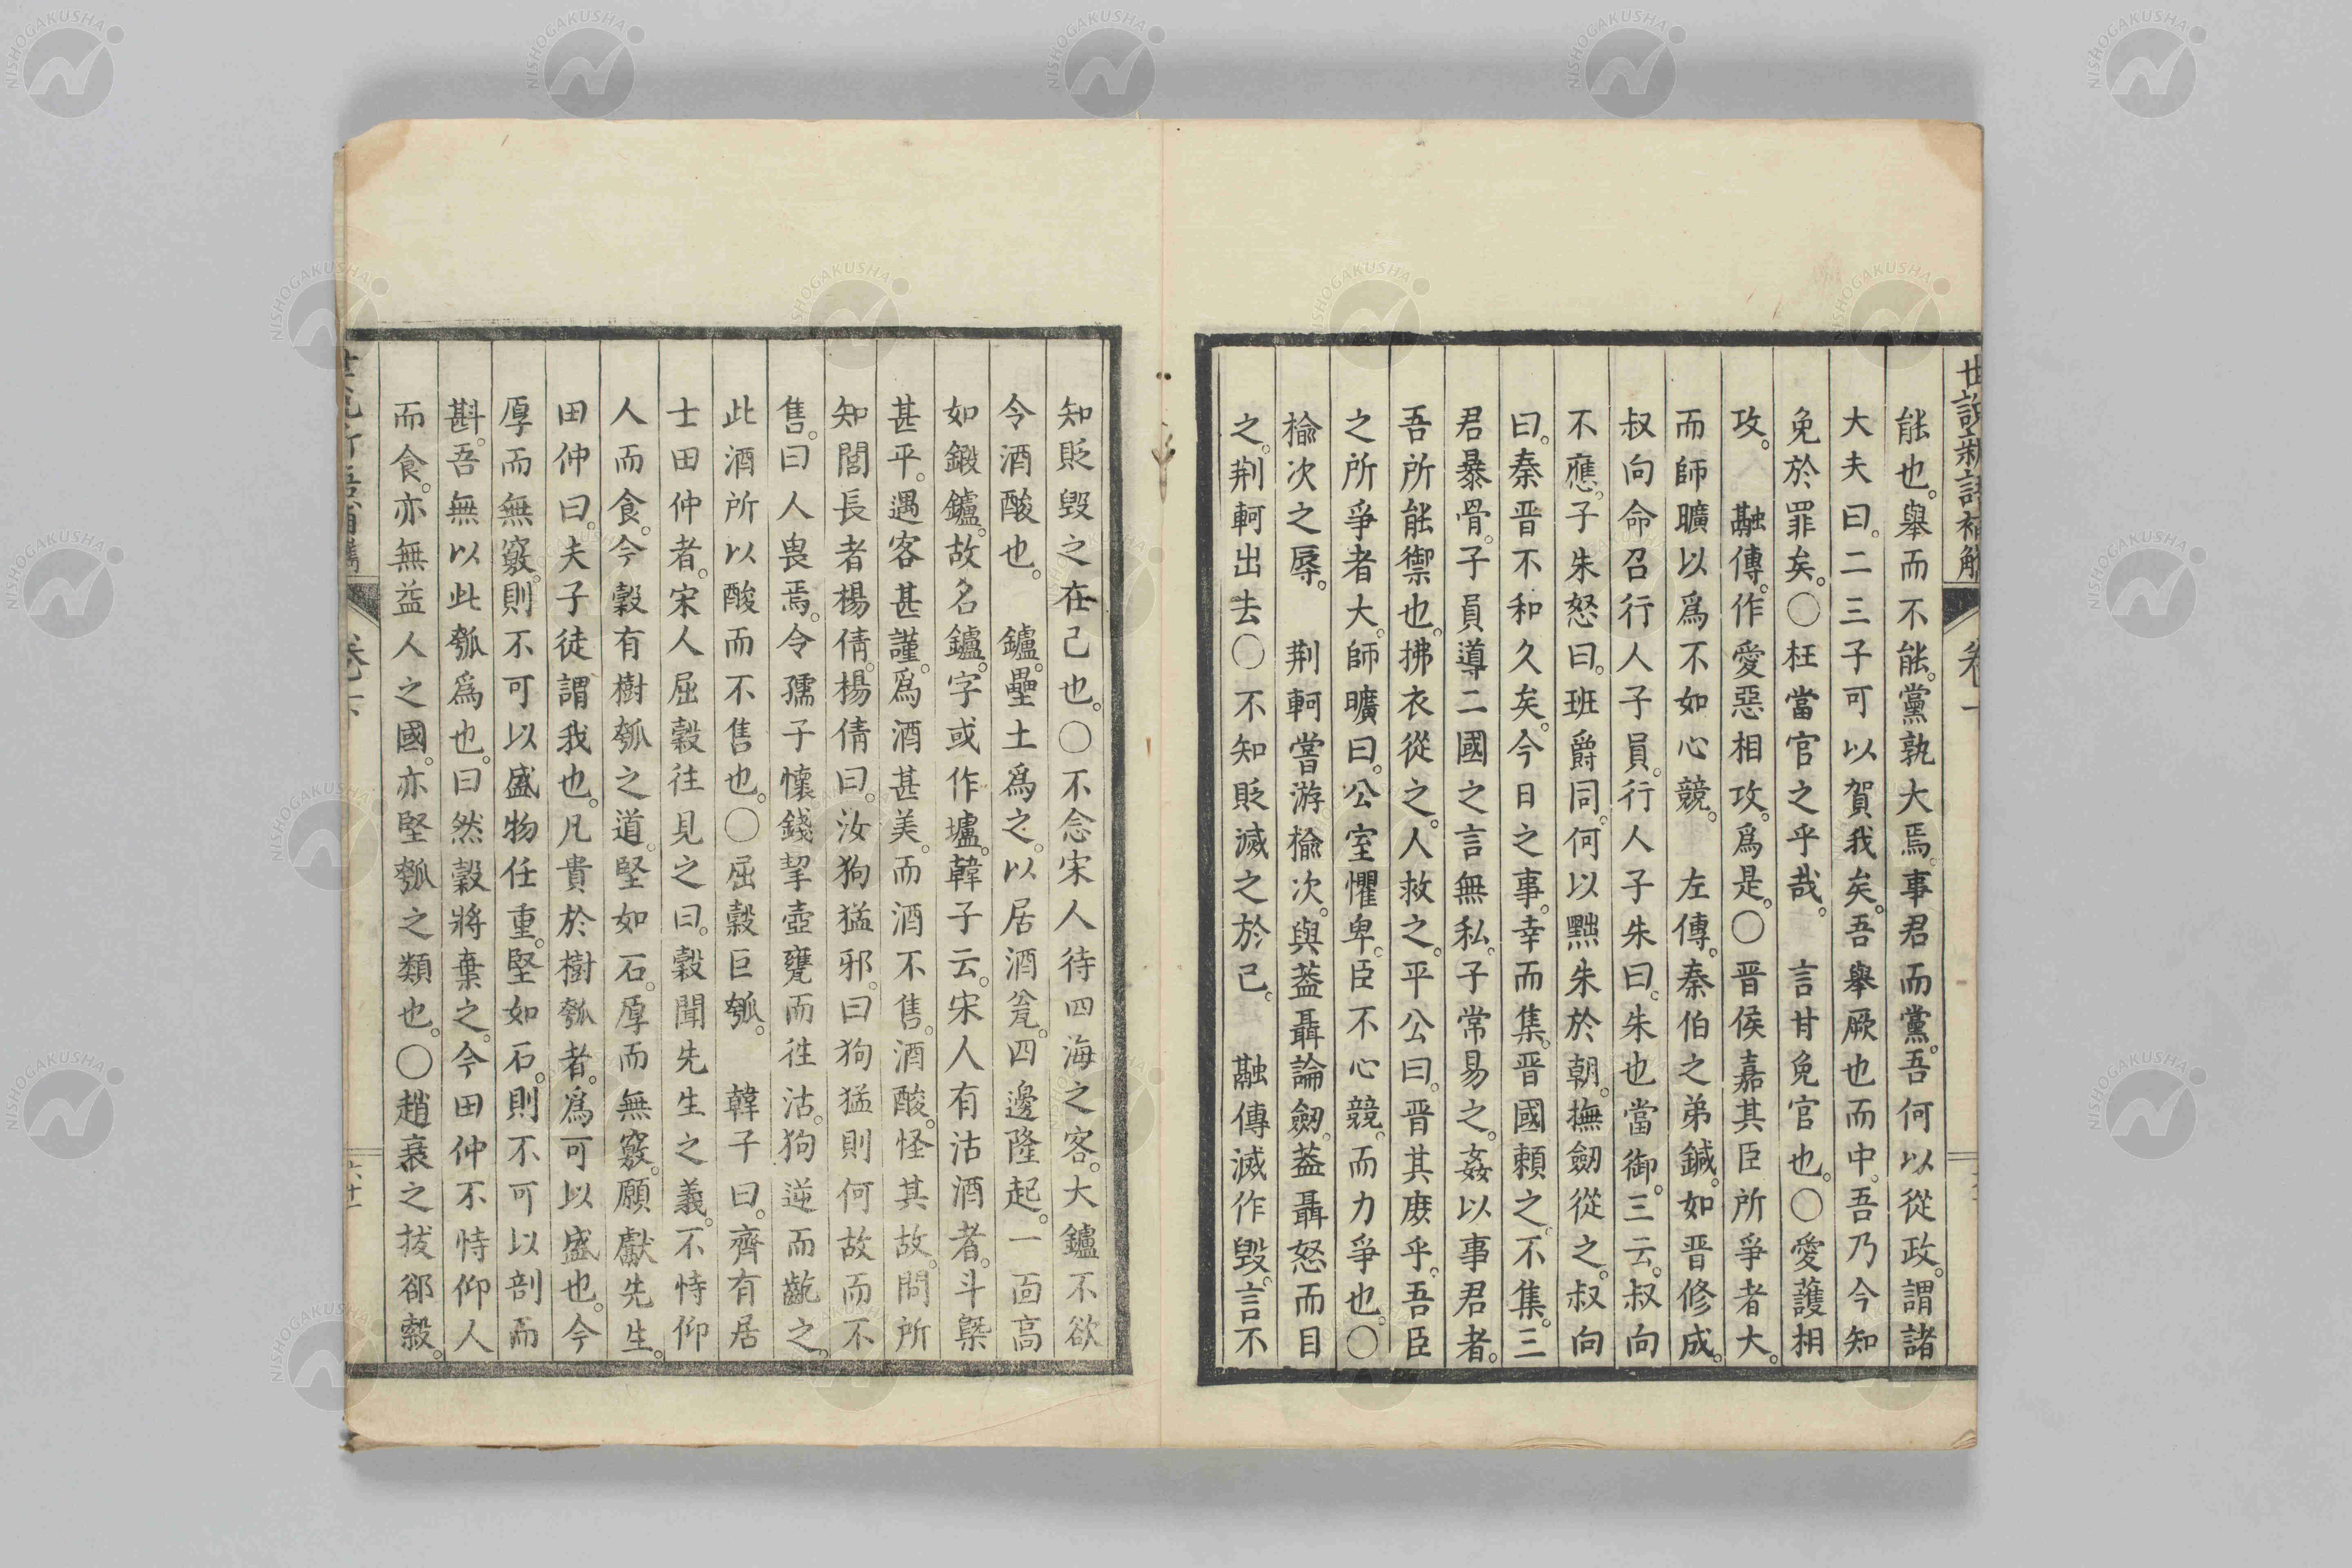 能也。舉而不能。黨孰大焉。事君而黨。吾何以從政。謂諸
大夫曰。二三子可以賀我矣。吾舉厥也而中。吾乃今知
免於罪矣。〇枉當官之乎哉。　言甘免官也。〇愛護相
攻。　融傳。作愛惡相攻。爲是。〇晉侯嘉其臣所爭者大。
而師曠以爲不如心競。　左傳。秦伯之弟鍼。如晉修成。
叔向命召行人子員。行人子朱曰。朱也當御。三云。叔向
不應。子朱怒曰。班爵同。何以黜朱於朝。撫劒從之。叔向
曰。秦晉不和久矣。今日之事。幸而集。晉國賴之。不集。三
君暴骨。子員導二國之言無私。子常易之。姦以事君者。
吾所能禦也。拂衣從之。人救之。平公曰。晉其庶乎。吾臣
之所爭者大。師曠曰。公室懼卑。臣不心競。而力爭也。〇
楡次之辱。　荆軻嘗游楡次。與葢聶論劒。葢聶怒而目
之。荆軻出去〇不知貶滅之於己。　融傳滅作毀。言不
知貶毀之在己也。〇不念宋人待四海之客。大鑪不欲
令酒酸也。　鑪。壘土爲之。以居酒瓮。四邊隆起。一面高
如鍛鑪。故名鑪。字或作壚。韓子云。宋人有沽酒者。斗槩
甚平。遇客甚謹。爲酒甚美。而酒不售。酒酸。怪其故。問所
知閭長者楊倩。楊倩曰。汝狗猛邪。曰狗猛則何故而不
售。曰人畏焉。令孺子懷錢挈壺甕而徃沽。狗逆而齕之。
此酒所以酸而不售也。〇屈穀巨瓠。　韓子曰。齊有居
士田仲者。宋人屈穀往見之曰。穀聞先生之義。不恃仰
人而食。今穀有樹瓠之道。堅如石。厚而無竅。願獻先生。
田仲曰。夫子徒謂我也。凡貴於樹瓠者。爲可以盛也。今
厚而無竅。則不可以盛物任重。堅如石。則不可以剖而
斟。吾無以此瓠爲也。曰然穀將棄之。今田仲不恃仰人
而食。亦無益人之國。亦堅瓠之類也。〇趙衰之拔郤縠。